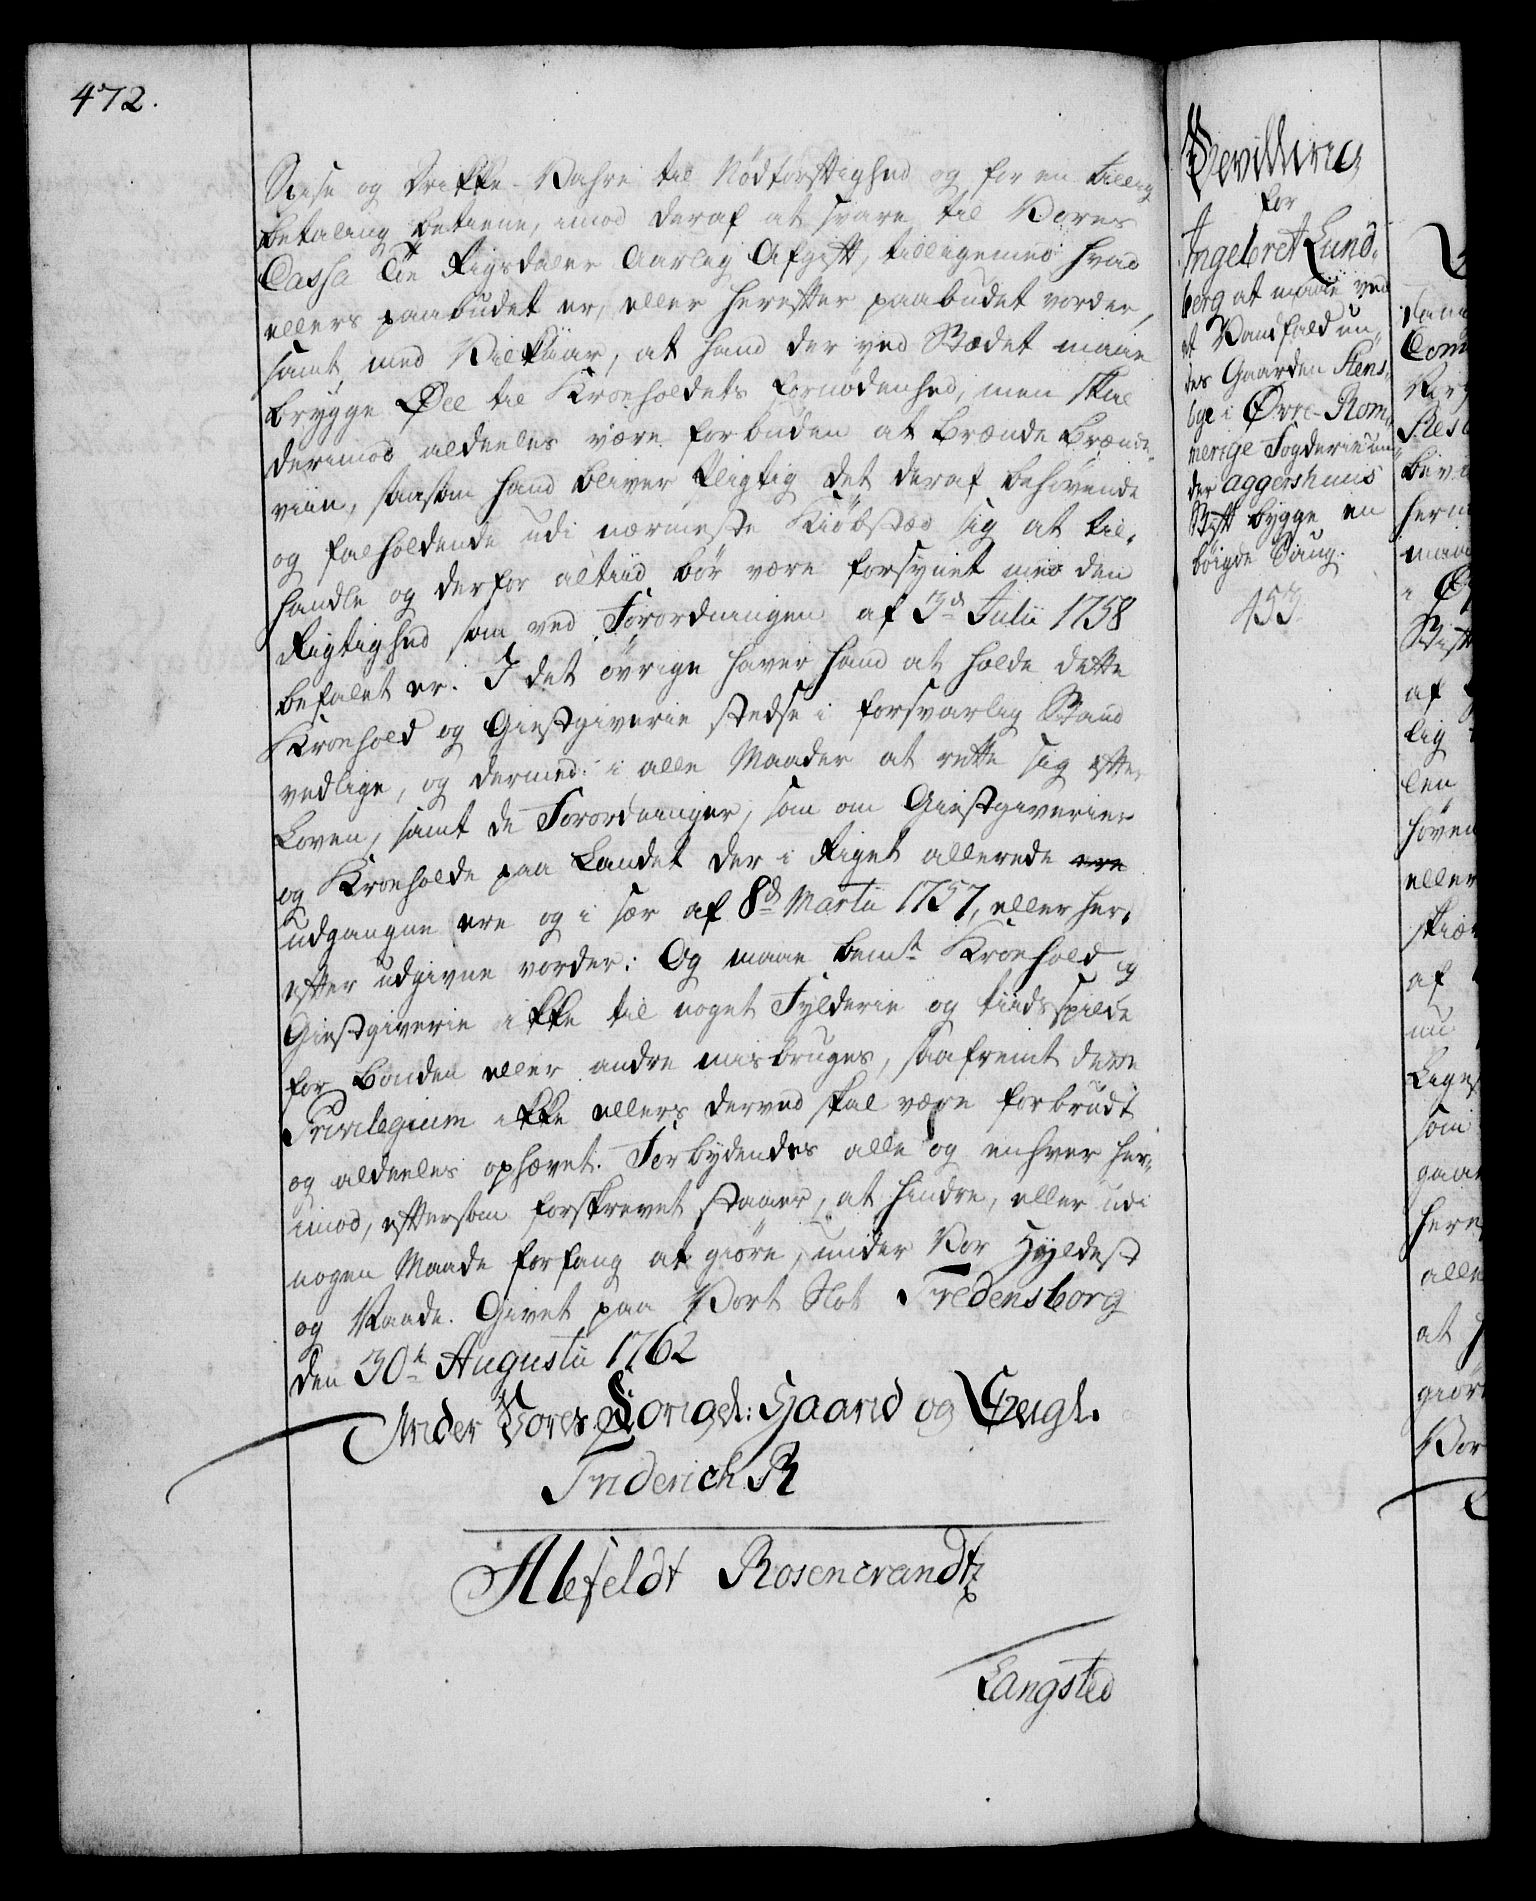 472.
Spise og Drikke-Vahre til Nødtørftighed og for en billig
betaling betiene, imod deraf at svare til Vores
Cassa Tie Rigsdaler Aarlig Afgift, tilligemed hvad
ellers paabudet er, eller herefter paabudet vorder,
samt med Vilkaar, at hand der ved Stædet maae
brygge Øll til Kroeholdets fornødenhed, men skal
derimod aldeeles være forbuden at brænde Brænde-
viin, saasom hand bliver pligtig det deraf behøvende
og falholdende udi nærmeste Kiøbstæd sig at til-
handle og derfor altiid bør være forsynet med den
Rigtighed som ved Forordningen af 3d Julii 1758
befalet er. I det øvrige haver hand at holde dette
Kroehold og Giestgiverie stedse i forsvarlig Stand
vedlige, og dermed i alle Maader at rette sig efter
Loven, samt de Forordninger, som om Giestgiverier
og Kroeholde paa Landet der i Riget allerede ere
udgangne ere og i sær af 8d Martii 1757, eller her-
efter udgivne vorder: Og maae bemte Kroehold og
Giestgiverie ikke til noget Fylderie og tiids spilde
for Bonden eller andre misbruges, saafremt dette
Privilegium ikke ellers derved skal være forbrudt
og aldeeles ophævet. Forbydendes alle og enhver her-
imod, eftersom forskrevet staaer, at hindre, eller udi
nogen Maade forfang at giøre, under Vor Hyldest
og Naade. Givet paa Vort Slot Fredensborg
den 30te Augustii 1762
Under Vores Kongel: Haand og Zeigl.
Friderich R
Alefeldt Rosencrandtz
Langsted
Bevilling
for
Ingebret Lund-
berg at maae ved
et Vandfald un-
der Gaarden Stens-
bye i Øvre-Rom-
merige Fogderie un-
der Aggershuus
Stift bygge en
bøigde Saug.
453.
Cond
bev
hern
maae
i Ø
Stift
af
lig
len
høven
eller
skiæ
af
nu
Liges
som
gaar
here
alle
at
giør
Vor